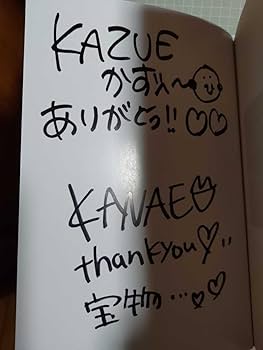 KAZUE
かずえ〜
ありがとう!!♡♡
KANAE
thankyou♡!!
宝物…♡♡